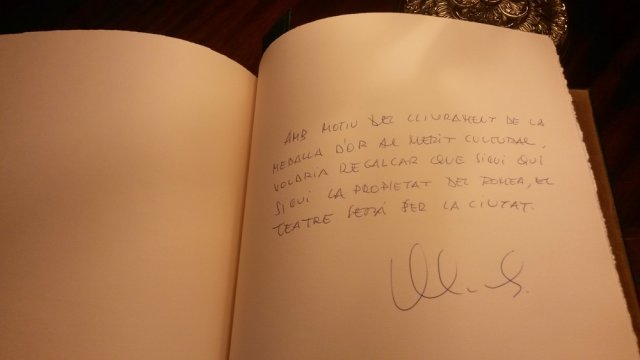 AMB MOTIU DEL LLIURAMENT DE LA
MEDALLA D'OR AL MERIT CULTURAL,
VOLDRIA RECALCAR QUE SIGUI QUI
SIGUI LA PROPIETAT DEL ROMEA, EL
TEATRE PER LA CIUTAT.